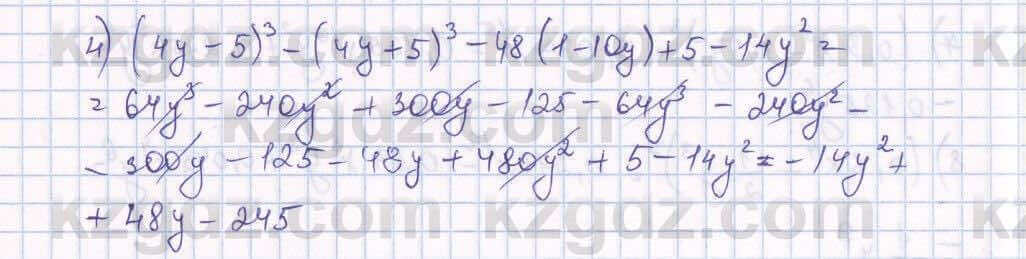 4) (4y - 5)³ - (4y + 5)³ - 48 (1 - 10y) + 5 - 14y² =
= 64y³ - 240y² + 300y - 125 - 64y³ - 240y² -
- 300y - 125 - 48y + 480y² + 5 - 14y² = - 14y² +
+ 48y - 245
kzgdz.com